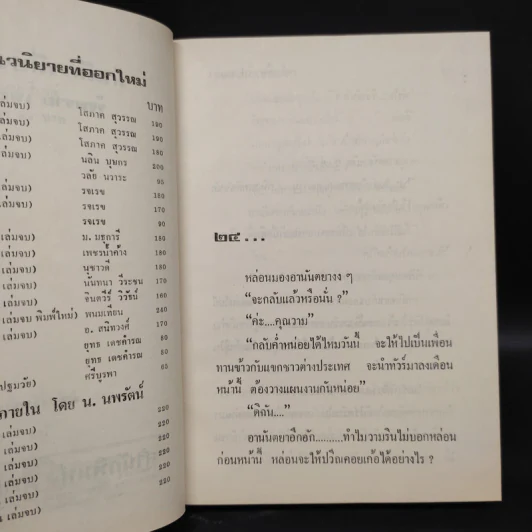 นวนิยายที่ออกใหม่
บาท
เล่มจบ) โสภาค สุวรรณ 190
เล่มจบ) โสภาค สุวรรณ 190
เล่มจบ) โสภาค สุวรรณ 180
เล่มจบ) นลิน บุษกร
เล่มจบ) วลัย นวาระ 90
เล่มจบ) รจเรข
เล่มจบ) รจเรข 170
รจเรข 90
เล่มจบ) ม. มธุการี 180
เล่มจบ) เพชรน้ำค้าง 180
เล่มจบ) นุชาวดี
เล่มจบ) นันทนา วีระชน 170
เล่มจบ) จินตวีร์ วิวัธน์ 160
เล่มจบ พิมพ์ใหม่) พนมเทียน 240
เล่มจบ) อ. สนิทวงศ์ 170
ยุทธ เดชคำรณ
ยุทธ เดชคำรณ
ปฐมวัย) ศรีบูรพา
ภายใน โดย น. นพรัตน์
เล่มจบ) 220
เล่มจบ) 220
เล่มจบ) 220
เล่มจบ) 220
เล่มจบ) 220
๒๔...
หล่อนมองอานันตยางง ๆ
“จะกลับแล้วหรือนั่น ?”
“ค่ะ....คุณวาม”
“กลับค่ำหน่อยได้ไหมวันนี้ จะให้ไปเป็นเพื่อน
ทานข้าวกับแขกชาวต่างประเทศ จะนำทัวร์มาลงเดือน
หน้านี้ ต้องวางแผนงานกันหน่อย”
“ดิฉัน....”
อานันตยาอึกอัก.........ทำไมวามรินไม่บอกหล่อน
ก่อนหน้านี้ หล่อนจะให้ปวีณคอยเก้อได้อย่างไร ?